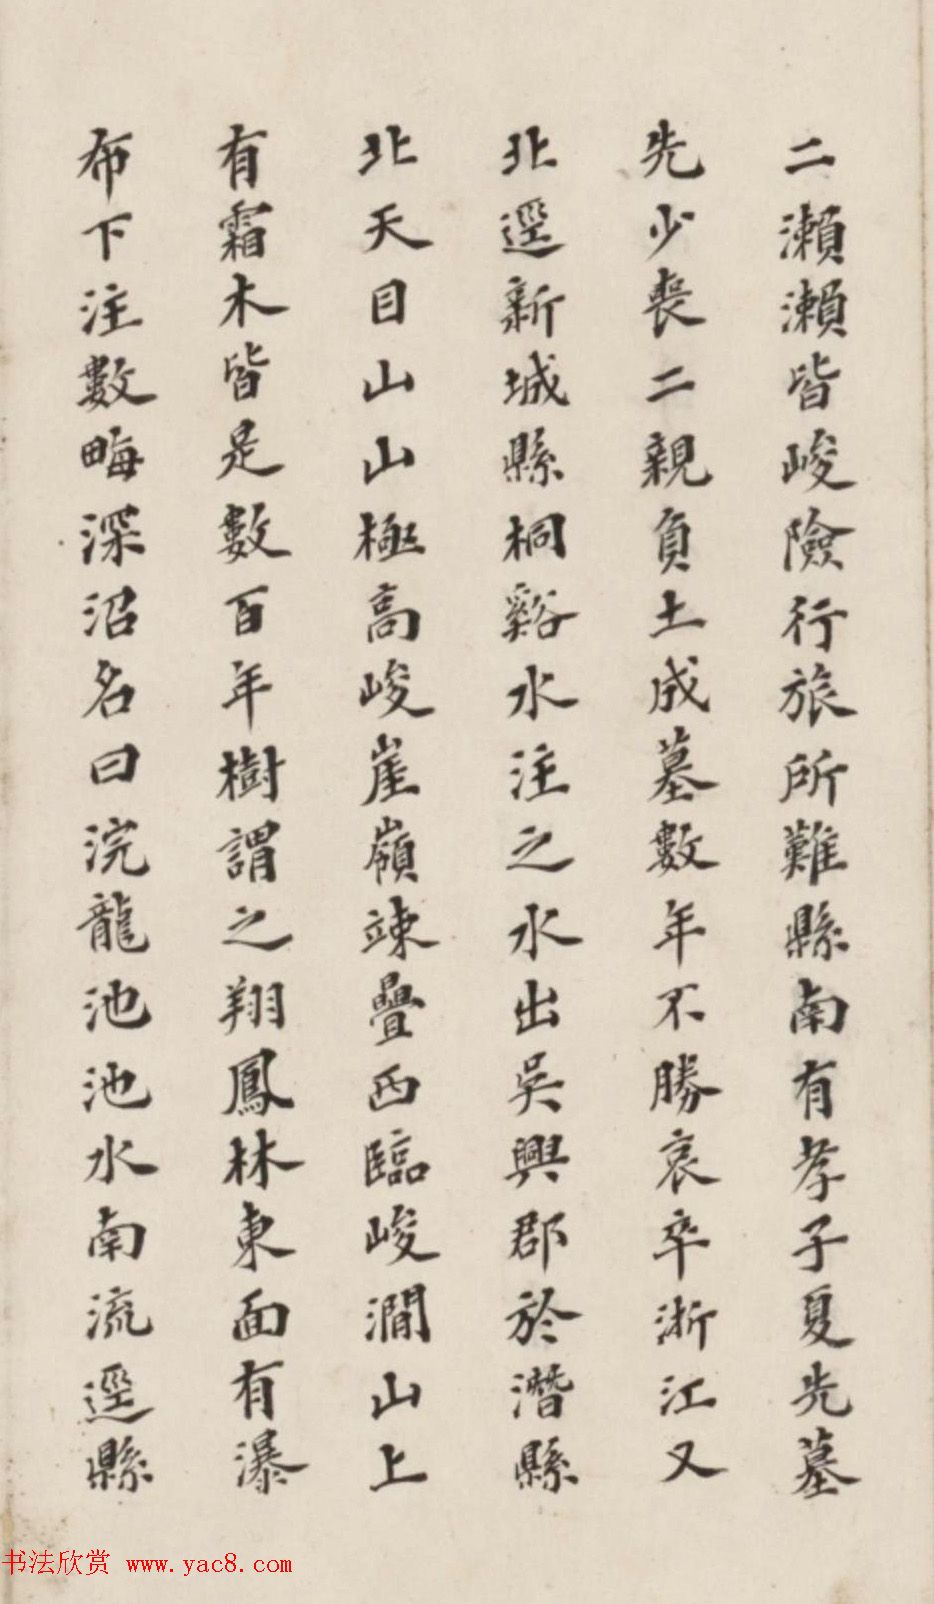 二瀬瀬皆峻險行旅所難縣南有孝子夏先墓
先少喪二親負土成墓數年不勝哀卒浙江又
北逕新城縣桐谿水注之水出吳興郡於潛縣
北天目山山極高峻崖嶺竦疊西臨峻澗山上
有霜木皆是數百年樹謂之翔鳳林東面有瀑
布下注數畮深沼名曰浣龍池池水南流逕縣
书法欣赏 www.yac8.com